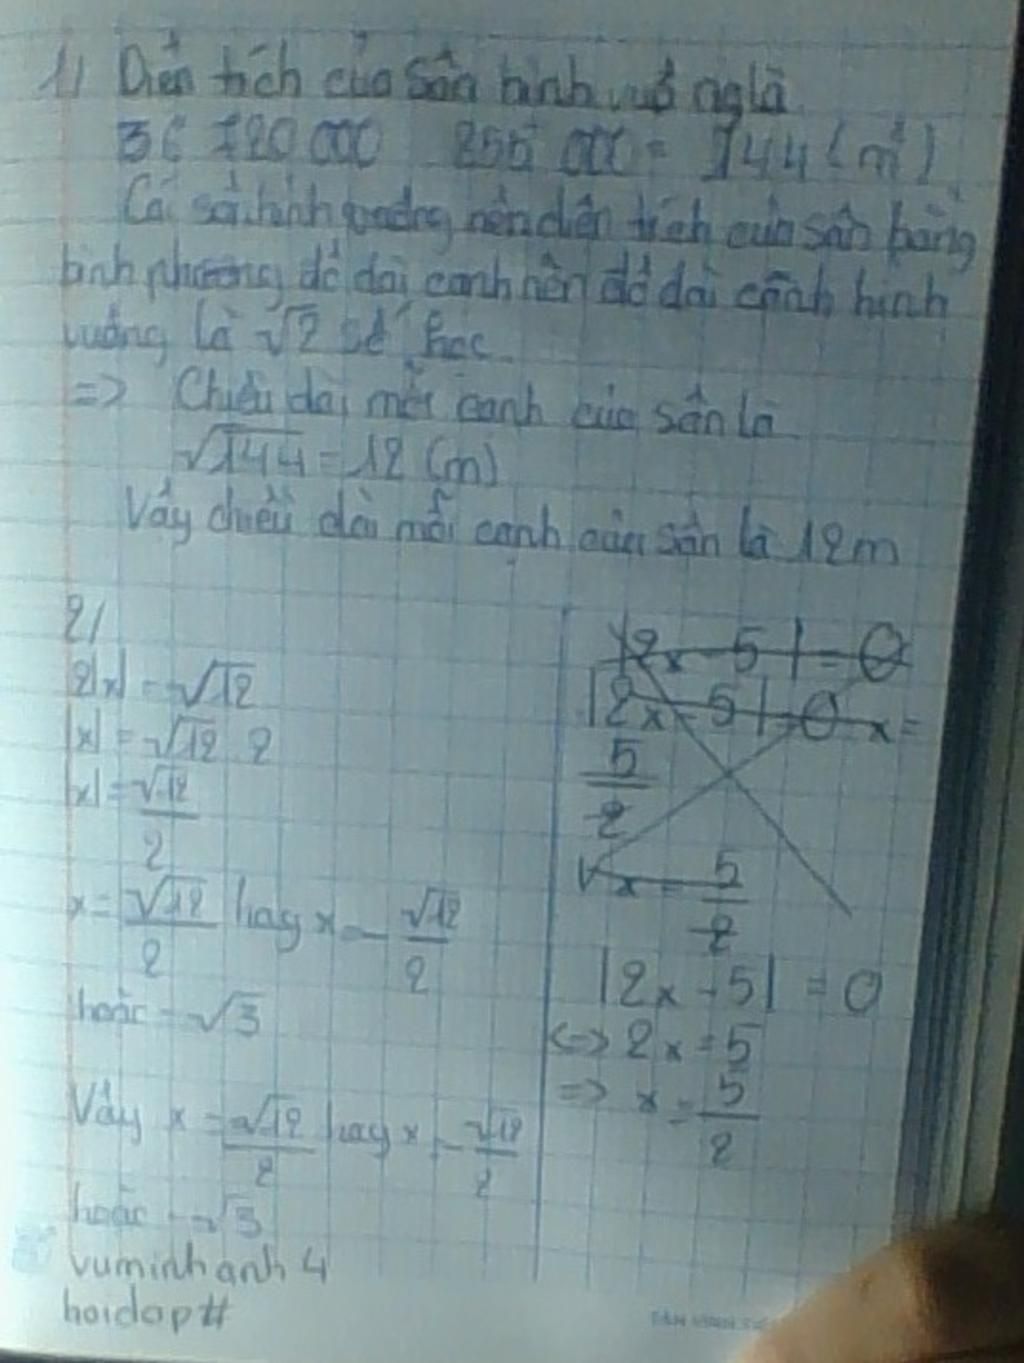 1/ Diện tích của sân hình vuông là
36 720 000 255 000 = 144 (m²)
sân hình vuông nên diện tích của sân bằng
bình phương độ dài cạnh nên độ dài cạnh hình
vuông là √2 số học
=> Chiều dài mỗi cạnh của sân là
√144 = 12 (m)
Vậy chiều dài mỗi cạnh của sân là 12m
2/
2|x| = √12
|x| = √12 2
|x| = √12/2
x = √12/2 hay x = -√12/2
hoặc -√3
Vậy x = √12/2 hay x = -√12/2
hoặc -√3
vuminhanh4
hoidap#
|2x-5| = 0
|2x-5| = 0 x =
5/2
x = 5/2
|2x-5| = 0
<=> 2x = 5
=> x = 5/2